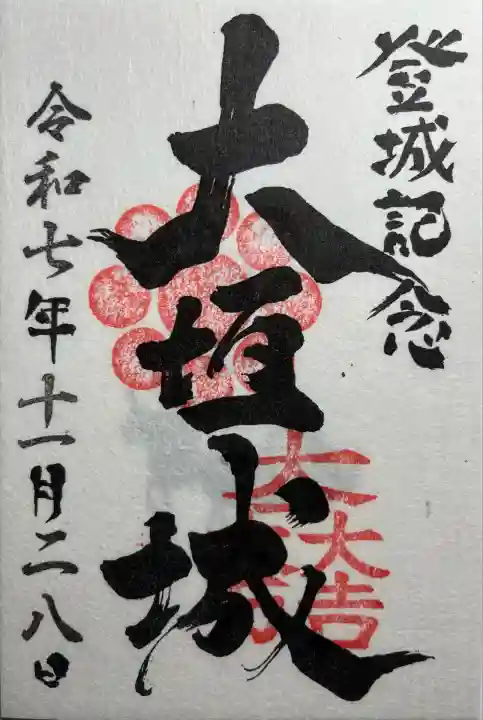 登城記念
大垣城
大一大万大吉
令和七年十一月二八日